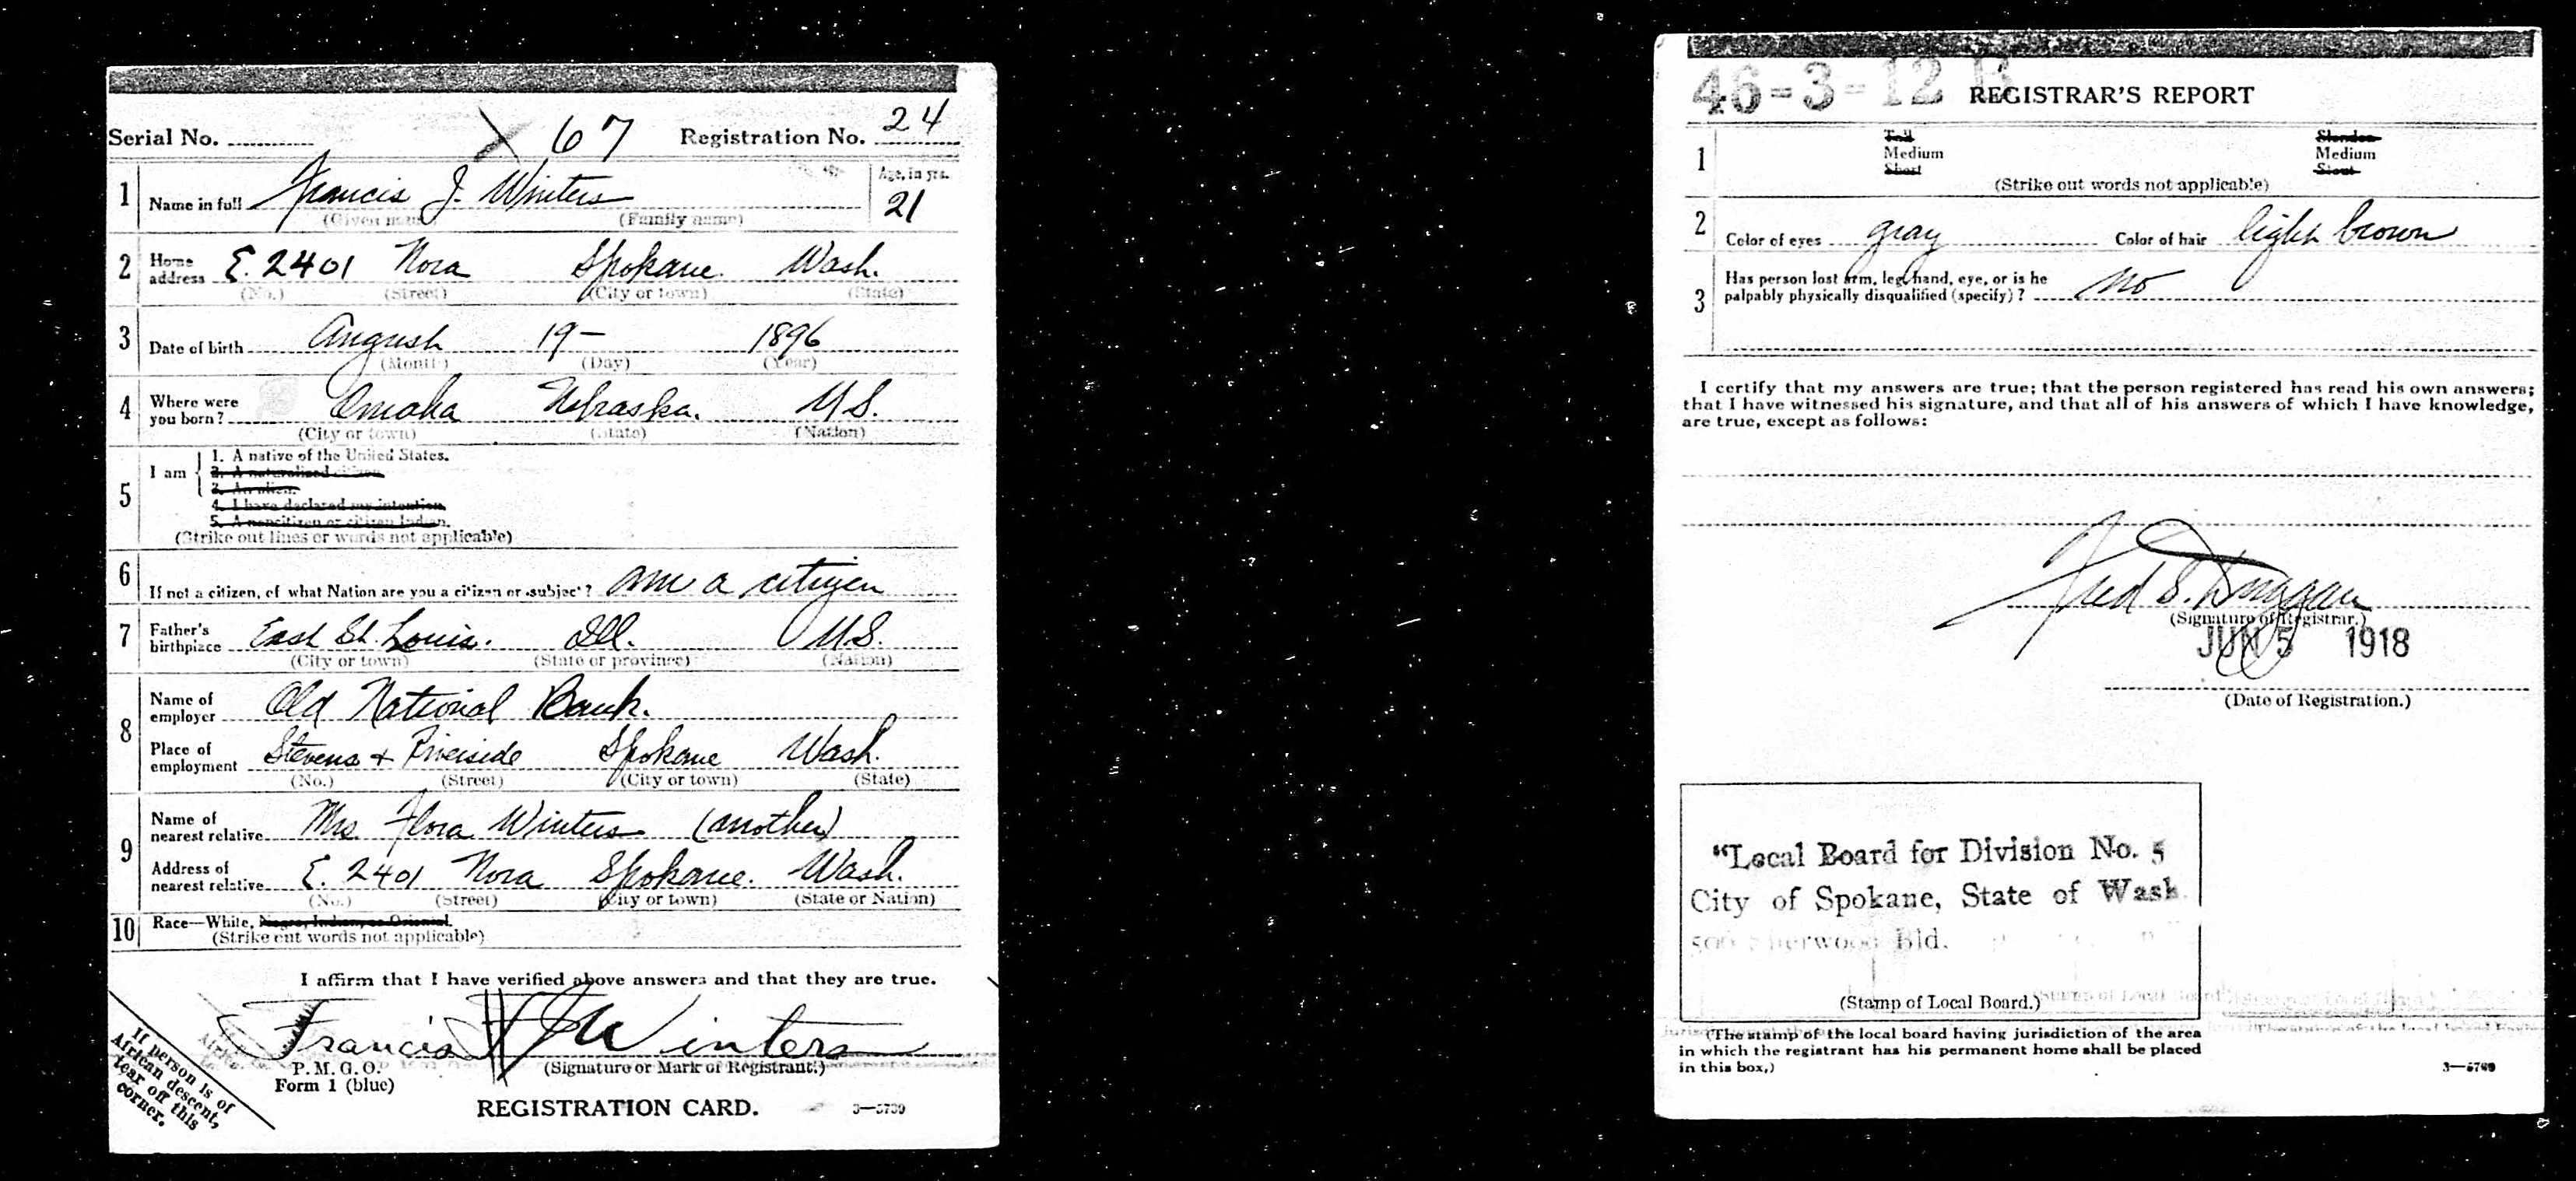 Serial No. 67 Registration No. 24
1 Name in full Francis J. Winters Age, in yrs. 21
(Given name) (Family name)
2 Home address E. 2401 Nora Spokane. Wash.
(No.) (Street) (City or town) (State)
3 Date of birth August 19- 1896
(Month) (Day) (Year)
4 Where were you born? Omaha Nebraska. U.S.
(City or town) (State) (Nation)
5 I am
1. A native of the United States.
2. A naturalized citizen.
3. An alien.
4. I have declared my intention.
5. A noncitizen or citizen Indian.
(Strike out lines or words not applicable)
6 If not a citizen, of what Nation are you a citizen or subject? am a citizen
7 Father's birthplace East St. Louis. Ill. U.S.
(City or town) (State or province) (Nation)
8 Name of employer Old National Bank.
Place of employment Stevens + Riverside Spokane Wash.
(No.) (Street) (City or town) (State)
9 Name of nearest relative Mrs Flora Winters (mother)
Address of nearest relative E. 2401 Nora Spokane. Wash.
(No.) (Street) (City or town) (State or Nation)
10 Race—White, Negro, Indian, or Oriental.
(Strike out words not applicable)
I affirm that I have verified above answers and that they are true.
Francis J Winters
P. M. G. O.
Form 1 (blue)
(Signature or Mark of Registrant.)
REGISTRATION CARD.
If person is of
African descent,
tear off this
corner.
46-3-12 B
REGISTRAR'S REPORT
1 Tall Slender
Medium Medium
Short Stout
(Strike out words not applicable)
2 Color of eyes gray Color of hair light brown
3 Has person lost arm, leg, hand, eye, or is he
palpably physically disqualified (specify)? no
I certify that my answers are true; that the person registered has read his own answers;
that I have witnessed his signature, and that all of his answers of which I have knowledge,
are true, except as follows:
Fred S. Duggan
(Signature of Registrar.)
JUN 5 1918
(Date of Registration.)
"Local Board for Division No. 5
City of Spokane, State of Wash.
Sherwood Bld.
(Stamp of Local Board.)
(The stamp of the local board having jurisdiction of the area
in which the registrant has his permanent home shall be placed
in this box.)